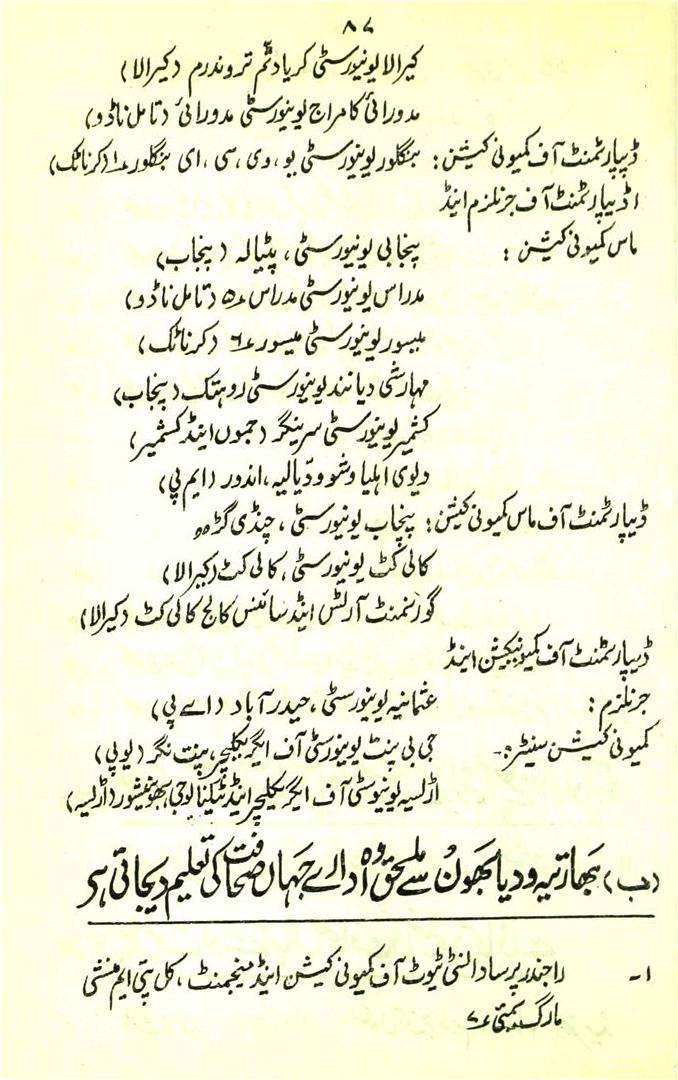 ۸۷
کیرالا یونیورسٹی کریاوٹم تروندرم (کیرالا)
مدورائی کامراج یونیورسٹی مدورائی (تامل ناڈو)
ڈیپارٹمنٹ آف کمیونی کیشن: بنگلور یونیورسٹی یو، وی، سی، ای بنگلور ۱ (کرناٹک)
ڈیپارٹمنٹ آف جرنلزم اینڈ
ماس کمیونی کیشن: پنجابی یونیورسٹی، پٹیالہ (پنجاب)
مدراس یونیورسٹی مدراس ۵ (تامل ناڈو)
میسور یونیورسٹی میسور ۶ (کرناٹک)
مہارشی دیانند یونیورسٹی روہتک (پنجاب)
کشمیر یونیورسٹی سرینگر (جموں اینڈ کشمیر)
دیوی اہلیا وشوودیالیہ، اندور (ایم پی)
ڈیپارٹمنٹ آف ماس کمیونی کیشن: پنجاب یونیورسٹی، چنڈی گڑھ
کالی کٹ یونیورسٹی، کالی کٹ (کیرالا)
گورنمنٹ آرٹس اینڈ سائنس کالج کالی کٹ (کیرالا)
ڈیپارٹمنٹ آف کمیونیکیشن اینڈ
جرنلزم: عثمانیہ یونیورسٹی، حیدرآباد (اے پی)
کمیونی کیشن سینٹر:۔ جی بی پنٹ یونیورسٹی آف ایگریکلچر، پنت نگر (یوپی)
اڑلیسہ یونیوسٹی آف ایگریکلچر اینڈ ٹیکنالوجی، بھوبنیشور (اڑلیسہ)
(ب) بھارتیہ ودیا بھون سے ملحق وہ ادارے جہاں صحافت کی تعلیم دیجاتی ہے
۱۔ راجندر پرساد انسٹی ٹیوٹ آف کمیونی کیشن اینڈ مینجمنٹ، کل پتی ایم منشی
مارگ بمبئی ۷